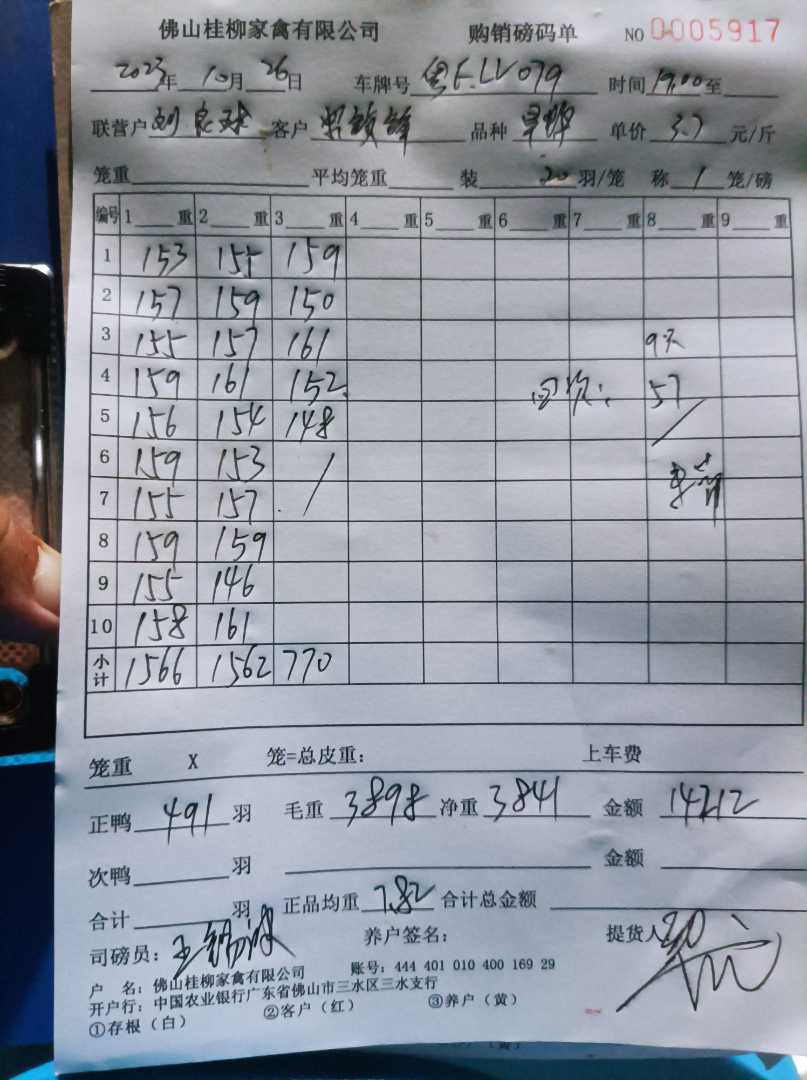 佛山桂柳家禽有限公司 购销磅码单 NO 0005917
2023年 10月 26日 车牌号 粤F.LV079 时间 19:00 至
联营户 刘良球 客户 品种 单价 3.7 元/斤
笼重 平均笼重 装 20 羽/笼 称 1 笼/磅
编号 1 重 2 重 3 重 4 重 5 重 6 重 7 重 8 重 9 重
1 153 155 159
2 157 159 150
3 155 157 161 9天
4 159 161 152 57
5 156 154 148
6 159 153
7 155 157
8 159 159
9 155 146
10 158 161
小计 1566 1562 770
笼重 X 笼=总皮重: 上车费
正鸭 491 羽 毛重 3898 净重 3841 金额 14212
次鸭 羽 金额
合计 羽 正品均重 7.82 合计总金额
司磅员: 养户签名: 提货人
户 名: 佛山桂柳家禽有限公司 账号: 444 401 010 400 169 29
开户行: 中国农业银行广东省佛山市三水区三水支行
①存根(白) ②客户(红) ③养户(黄)